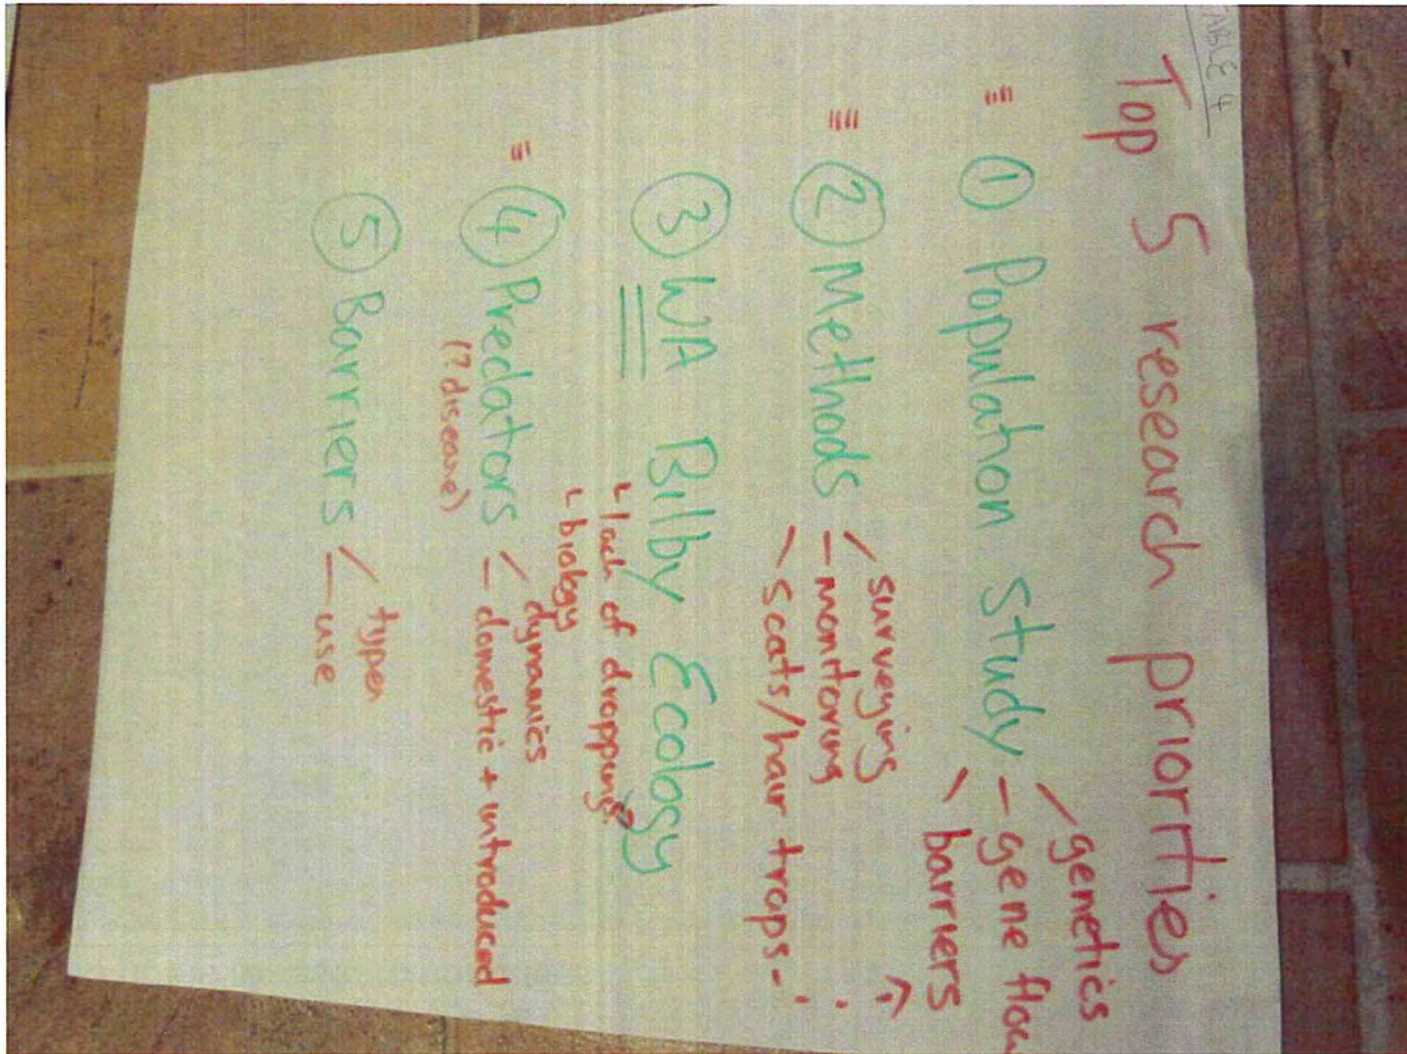 TABLE 4
Top 5 research priorties
① Population Study - genetics
- gene flow
- barriers
② Methods - surveying
- monitoring
- scats/hair traps -
③ WA Bilby Ecology
↳ lack of droppings?
↳ biology
④ Predators - dynamics
- domestic + introduced
(? disease)
⑤ Barriers - types
- use